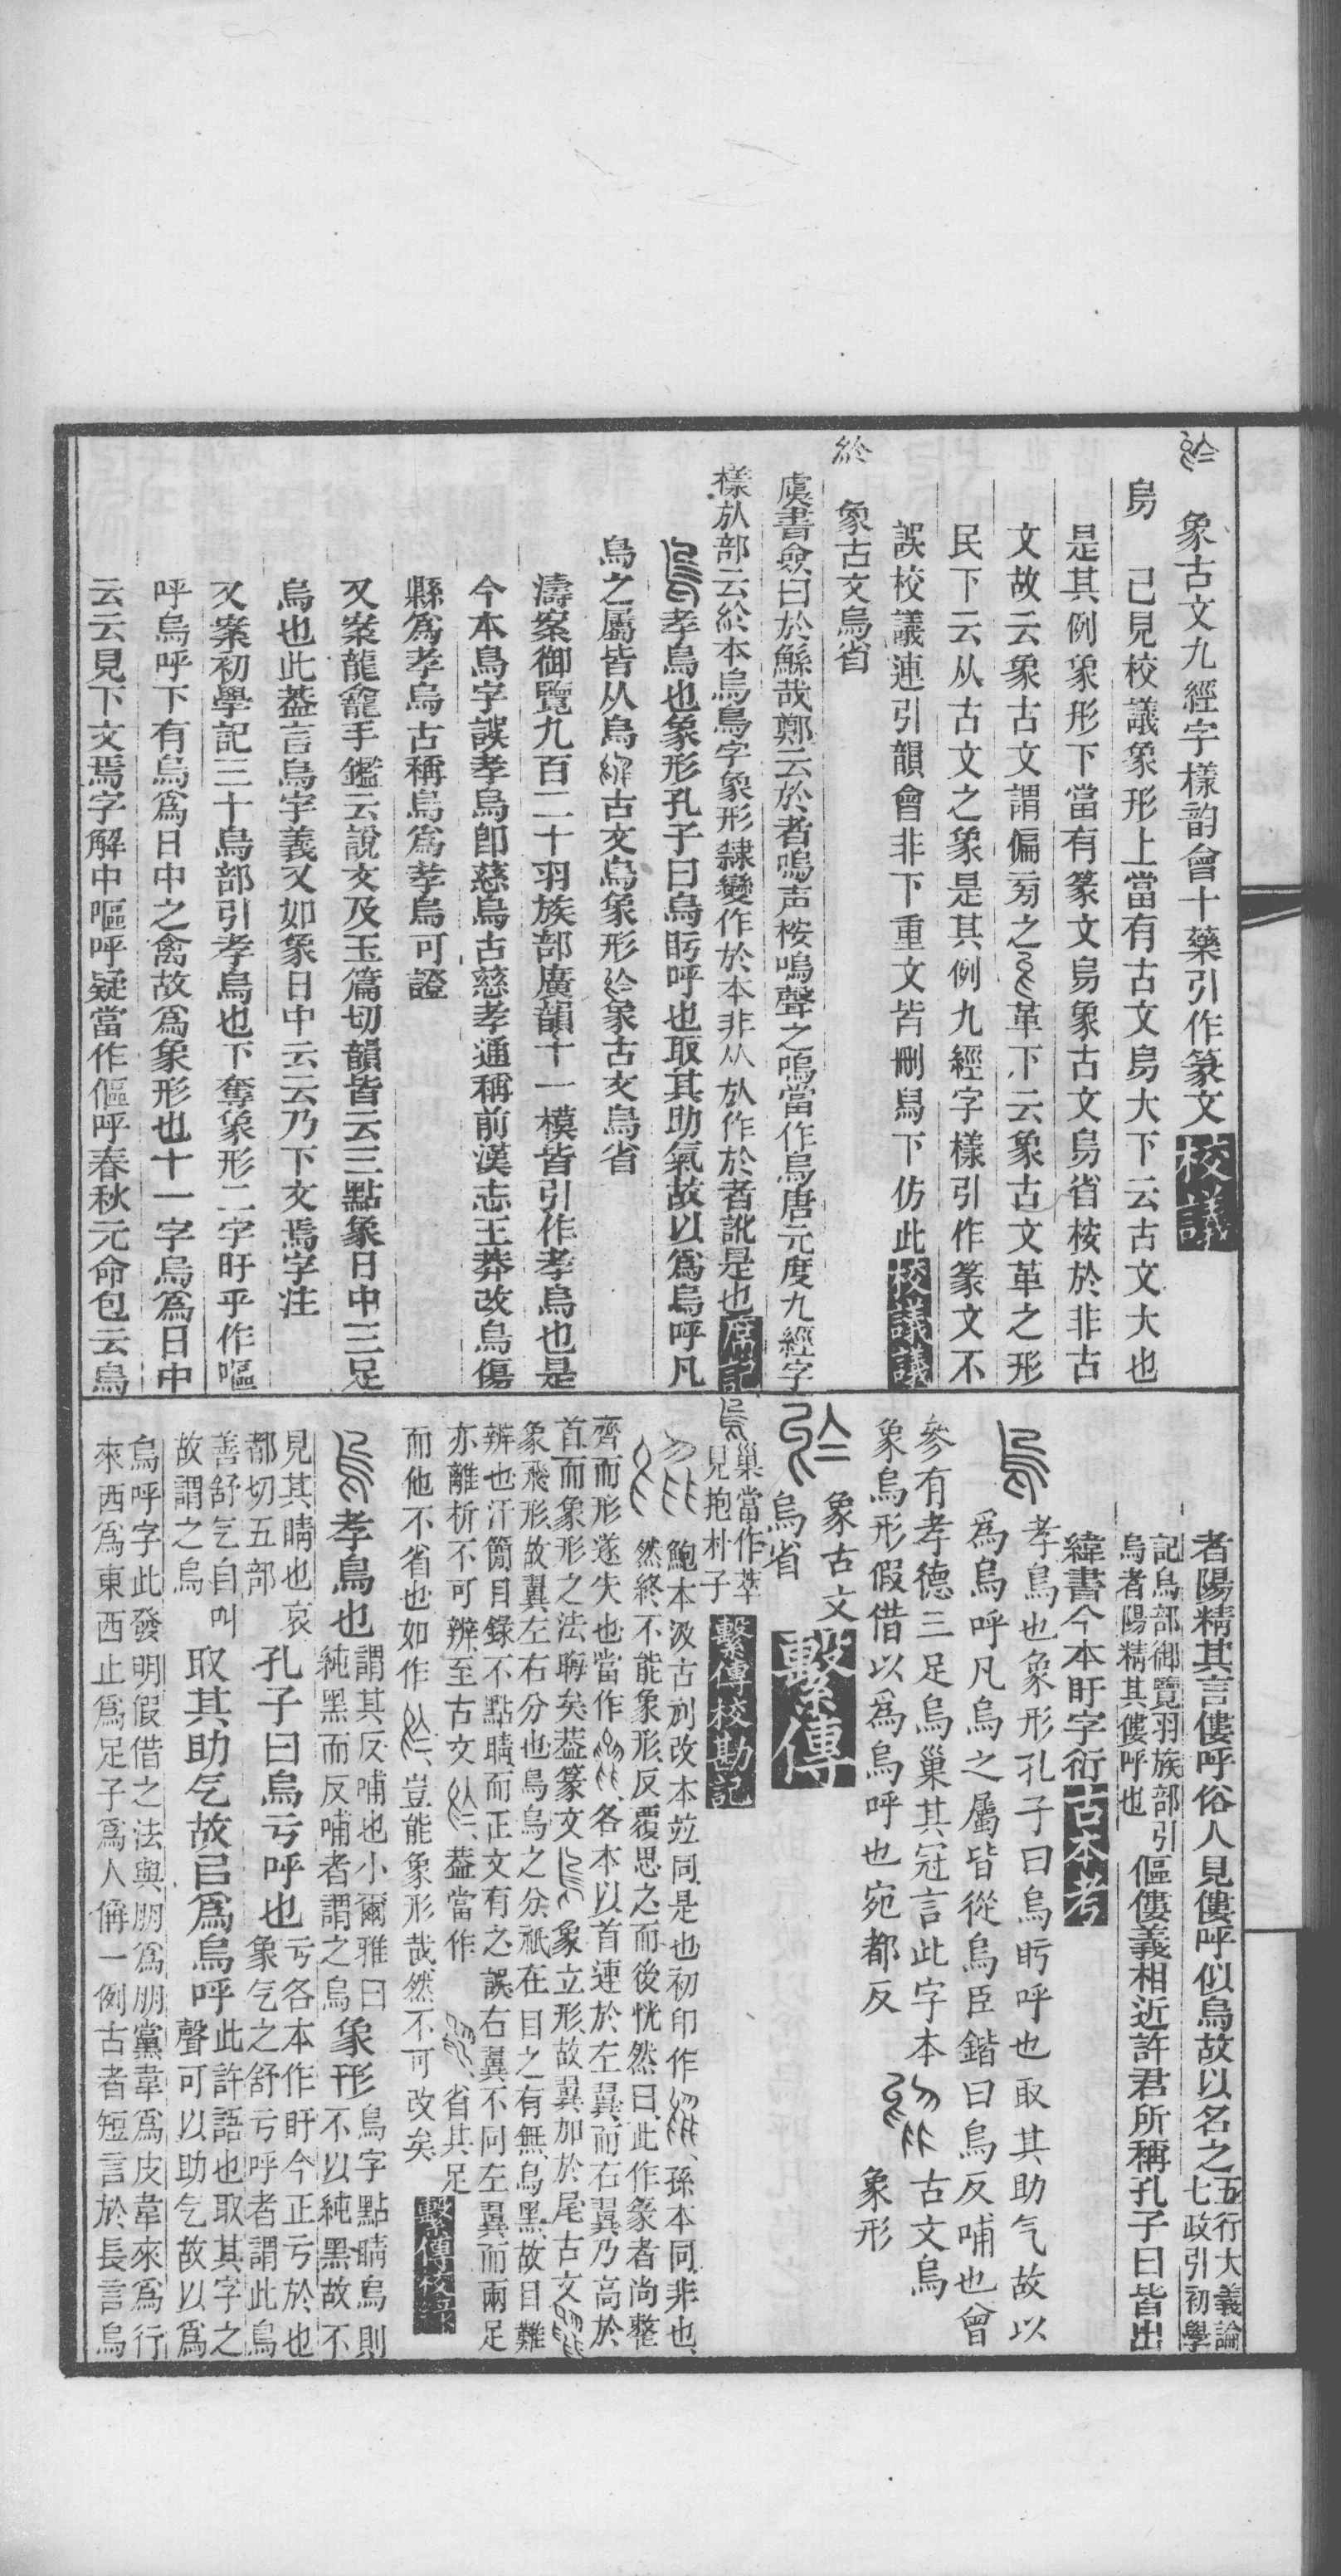 象古文九經字樣韵會十藥引作篆文校議
舃　已見校議象形上當有古文舃大下云古文大也
是其例象形下當有篆文舃象古文舃省桉於非古
文故云象古文謂偏㫄之革下云象古文革之形
民下云从古文之象是其例九經字樣引作篆文不
誤校議連引韻會非下重文皆刪舃下仿此校議議
象古文烏省
虞書僉曰於鯀哉鄭云於者嗚声桉嗚聲之嗚當作烏唐元度九經字
樣㫃部云於本烏鳥字象形隸變作於本非从㫃作於者訛是也席記
孝鳥也象形孔子曰烏盱呼也取其助氣故以爲烏呼凡
烏之屬皆从烏古文烏象形象古文烏省
濤案御覽九百二十羽族部廣韻十一模皆引作孝烏也是
今本鳥字誤孝烏卽慈烏古慈孝通稱前漢志王莽改烏傷
縣爲孝烏古稱烏爲孝烏可證
又案龍龕手鑑云說文及玉篇切韻皆云三點象日中三足
烏也此蓋言烏字義又如象日中云云乃下文焉字注
又案初學記三十鳥部引孝烏也下奪象形二字盱乎作嘔
呼烏呼下有烏爲日中之禽故爲象形也十一字烏爲日中
云云見下文焉字解中嘔呼疑當作傴呼春秋元命包云烏
者陽精其言僂呼俗人見僂呼似烏故以名之五行大義論七政引初學
記鳥部御覽羽族部引烏者陽精其僂呼也傴僂義相近許君所稱孔子曰皆出
緯書今本盱字衍古本考
孝鳥也象形孔子曰烏盱呼也取其助气故以
爲烏呼凡烏之屬皆從烏臣鍇曰烏反哺也曾
參有孝德三足烏巢其冠言此字本
象烏形假借以爲烏呼也宛都反　古文烏象形
象古文烏省繫傳
巢當作萃見抱朴子繫傳校勘記
鮑本汲古刓改本竝同是也初印作孫本同非也
然終不能象形反覆思之而後恍然曰此作篆者尚整
齊而形遂失也當作各本以首連於左翼而右翼乃高於
首而象形之法晦矣葢篆文象立形故翼加於尾古文
象飛形故翼左右分也鳥烏之分祇在目之有無烏黑故目難
辨也汗簡目錄不點睛而正文有之誤右翼不同左翼而兩足
亦離析不可辨至古文葢當作省其足
而他不省也如作豈能象形哉然不可改矣繫傳校錄
孝鳥也謂其反哺也小爾雅曰純黑而反哺者謂之烏象形鳥字點睛烏則不以純黑故不
見其睛也哀都切五部孔子曰烏亏呼也亏各本作盱今正亏於也象气之舒亏呼者謂此鳥
善舒气自叫故謂之烏取其助气故㠯爲烏呼此許語也取其字之聲可以助气故以爲
烏呼字此發明假借之法與朋爲朋黨韋爲皮韋來爲行
來西爲東西止爲足子爲人偁一例古者短言於長言烏